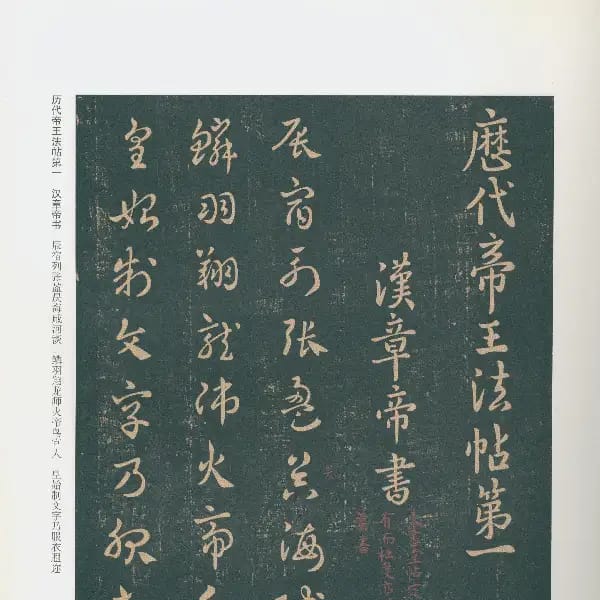 厯代帝王法帖第一
漢章帝書
辰宿列張盈昃海
鱗羽翔龍師火帝
皇始制文字乃服
历代帝王法帖第一 汉章帝书 辰宿列张盈昃海咸河淡 鳞羽翔龙师火帝鸟官人 皇始制文字乃服衣遐迩